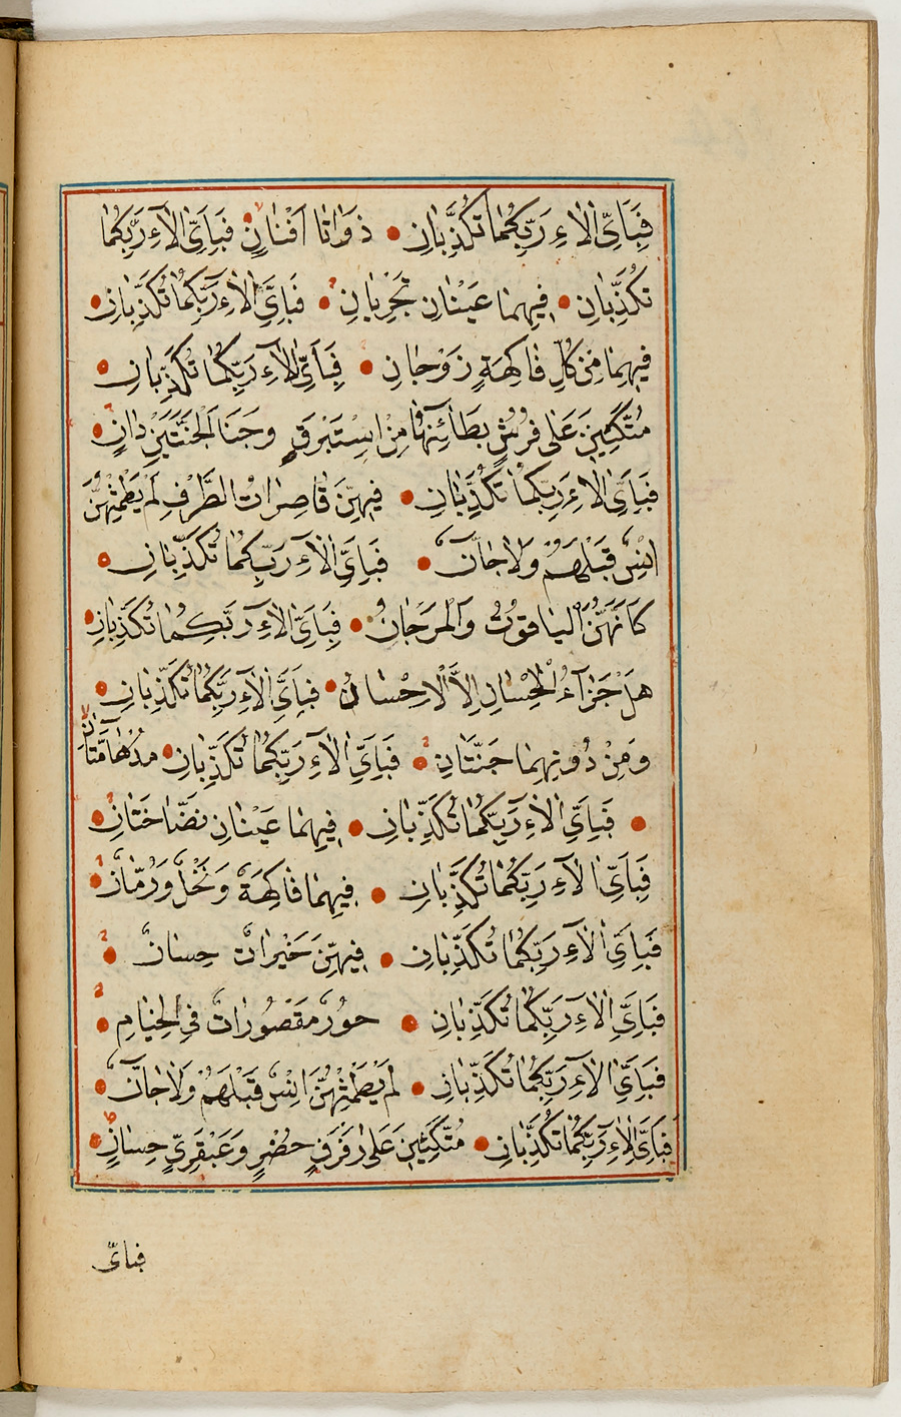 فَبِاَيِّ اٰلَاۤءِ رَبِّكُمَا تُكَذِّبَانِ ذَوَاتَا اَفْنَانٍ فَبِاَيِّ اٰلَاۤءِ رَبِّكُمَا
تُكَذِّبَانِ فِيهِمَا عَيْنَانِ تَجْرِيَانِ فَبِاَيِّ اٰلَاۤءِ رَبِّكُمَا تُكَذِّبَانِ
فِيهِمَا مِنْ كُلِّ فَاكِهَةٍ زَوْجَانِ فَبِاَيِّ اٰلَاۤءِ رَبِّكُمَا تُكَذِّبَانِ
مُتَّكِـِٔينَ عَلٰى فُرُشٍ بَطَاۤئِنُهَا مِنْ اِسْتَبْرَقٍ وَجَنَا الْجَنَّتَيْنِ دَانٍ
فَبِاَيِّ اٰلَاۤءِ رَبِّكُمَا تُكَذِّبَانِ فِيهِنَّ قَاصِرَاتُ الطَّرْفِ لَمْ يَطْمِثْهُنَّ
اِنْسٌ قَبْلَهُمْ وَلَا جَاۤنٌّ فَبِاَيِّ اٰلَاۤءِ رَبِّكُمَا تُكَذِّبَانِ
كَاَنَّهُنَّ الْيَاقُوتُ وَالْمَرْجَانُ فَبِاَيِّ اٰلَاۤءِ رَبِّكُمَا تُكَذِّبَانِ
هَلْ جَزَاۤءُ الْاِحْسَانِ اِلَّا الْاِحْسَانُ فَبِاَيِّ اٰلَاۤءِ رَبِّكُمَا تُكَذِّبَانِ
وَمِنْ دُونِهِمَا جَنَّتَانِ فَبِاَيِّ اٰلَاۤءِ رَبِّكُمَا تُكَذِّبَانِ مُدْهَاۤمَّتَانِ
فَبِاَيِّ اٰلَاۤءِ رَبِّكُمَا تُكَذِّبَانِ فِيهِمَا عَيْنَانِ نَضَّاخَتَانِ
فَبِاَيِّ اٰلَاۤءِ رَبِّكُمَا تُكَذِّبَانِ فِيهِمَا فَاكِهَةٌ وَنَخْلٌ وَرُمَّانٌ
فَبِاَيِّ اٰلَاۤءِ رَبِّكُمَا تُكَذِّبَانِ فِيهِنَّ خَيْرَاتٌ حِسَانٌ
فَبِاَيِّ اٰلَاۤءِ رَبِّكُمَا تُكَذِّبَانِ حُورٌ مَقْصُورَاتٌ فِي الْخِيَامِ
فَبِاَيِّ اٰلَاۤءِ رَبِّكُمَا تُكَذِّبَانِ لَمْ يَطْمِثْهُنَّ اِنْسٌ قَبْلَهُمْ وَلَا جَاۤنٌّ
فَبِاَيِّ اٰلَاۤءِ رَبِّكُمَا تُكَذِّبَانِ مُتَّكِـِٔينَ عَلٰى رَفْرَفٍ خُضْرٍ وَعَبْقَرِيٍّ حِسَانٍ
فباىّ